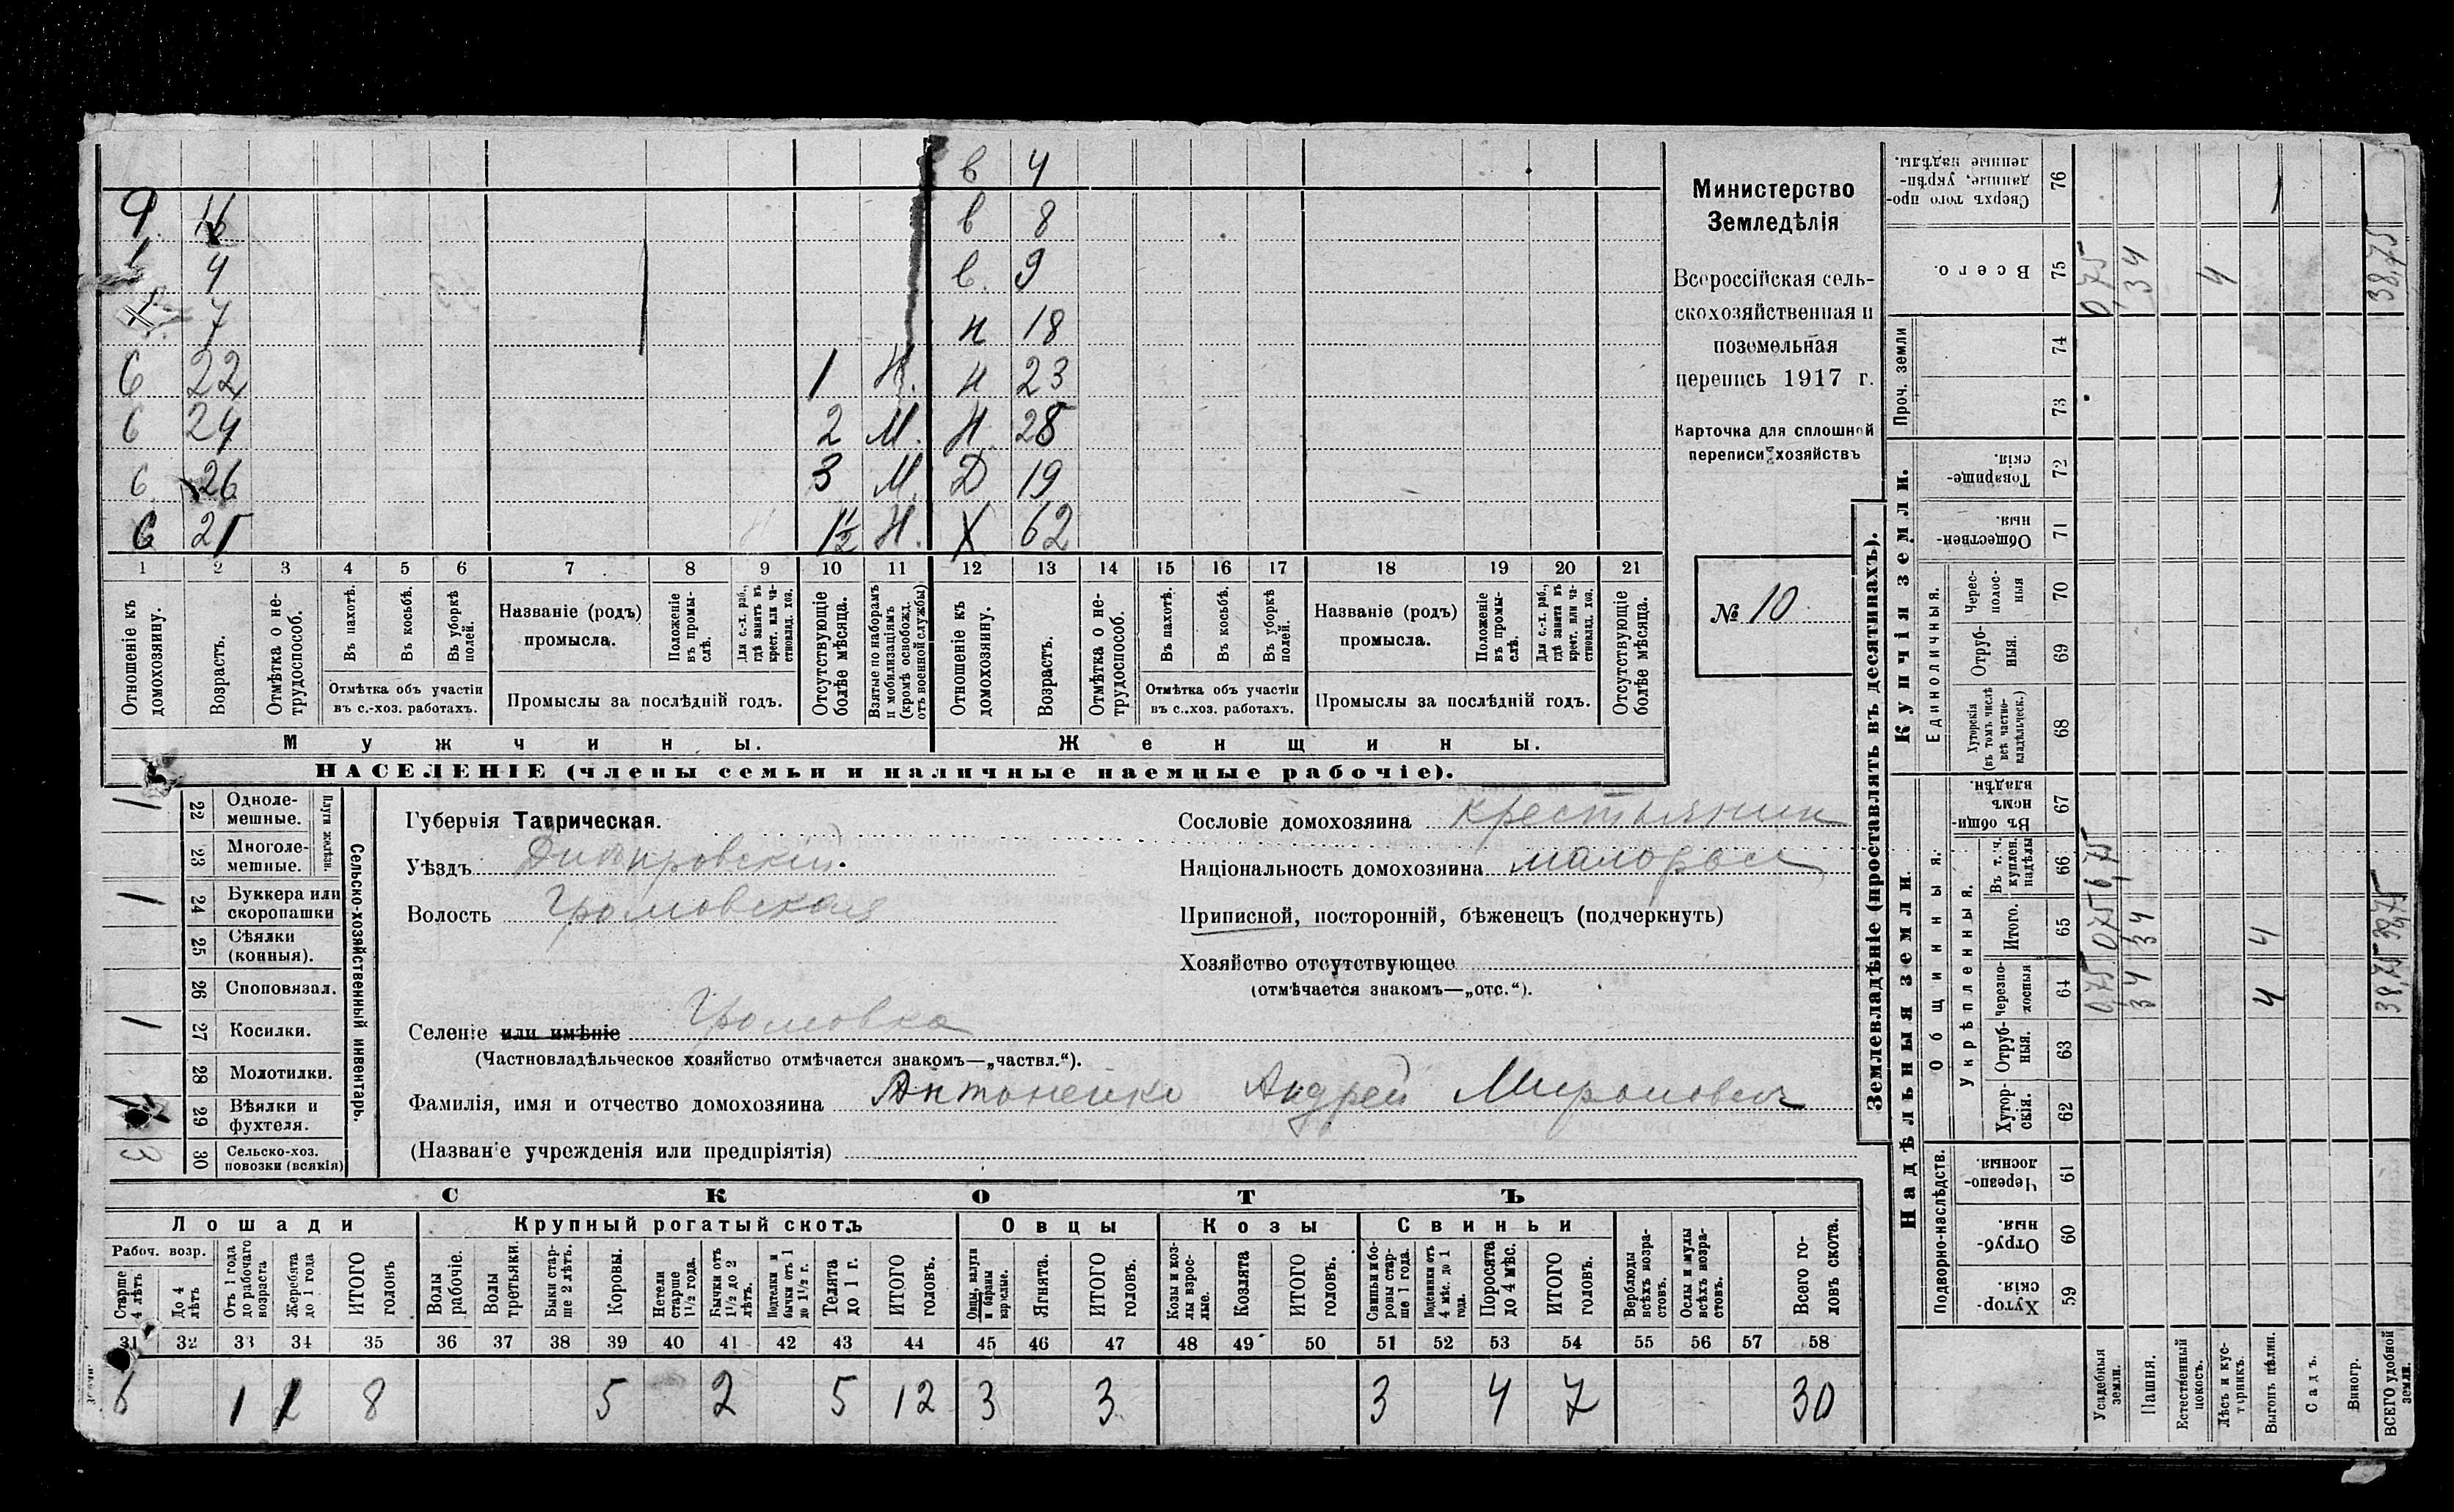 в 4
9 16 в 8
4 в. 9
7 н 18
С 22 1 Н. н 23
С 24 2 М. Н. 28
С 26 3 М. Д 19
С 21 1½ Н. Х 62
1 2 3 4 5 6 7 8 9 10 11 12 13 14 15 16 17 18 19 20 21
Отношеніе къ домохозяину.
Возрастъ.
Отмѣтка о нетрудоспособ.
Въ пахотѣ.
Въ косьбѣ.
Въ уборкѣ полей.
Отмѣтка объ участіи
въ с.-хоз. работахъ.
Названіе (родъ)
промысла.
Положеніе въ промыслѣ.
Для с.-х. раб., гдѣ занятъ въ крест. или частновлад. хоз.
Промыслы за послѣдній годъ.
Отсутствующіе болѣе мѣсяца.
Взятые по наборамъ и мобилизаціямъ (кромѣ освобожд. отъ военной службы)
Отношеніе къ домохозяину.
Возрастъ.
Отмѣтка о нетрудоспособ.
Въ пахотѣ.
Въ косьбѣ.
Въ уборкѣ полей.
Отмѣтка объ участіи
въ с.-хоз. работахъ.
Названіе (родъ)
промысла.
Положеніе въ промыслѣ.
Для с.-х. раб., гдѣ занята въ крест. или частновлад. хоз.
Промыслы за послѣдній годъ.
Отсутствующіе болѣе мѣсяца.
Мужчины.
Женщины.
НАСЕЛЕНІЕ (члены семьи и наличные наемные рабочіе).
Министерство
Земледѣлія
Всероссійская сель-
скохозяйственная и
поземельная
перепись 1917 г.
Карточка для сплошной
переписи хозяйствъ
№ 10.
Сельско-хозяйственный инвентарь.
Плуги желѣзн.
1 22 Одноле-
мешные.
23 Многоле-
мешные.
1 24 Буккера или
скоропашки
25 Сѣялки
(конныя).
26 Споповязал.
1 27 Косилки.
28 Молотилки.
29 Вѣялки и
фухтеля.
3 30 Сельско-хоз.
повозки (всякія)
Губернія Таврическая.
Уѣздъ Днѣпровскій.
Волость Громовская
Селеніе или имѣніе Громовка
(Частновладѣльческое хозяйство отмѣчается знакомъ—„частвл.“).
Фамилія, имя и отчество домохозяина Антоненко Андрей Миронович
(Названіе учрежденія или предпріятія)
Сословіе домохозяина крестьянин
Національность домохозяина малоросс
Приписной, посторонній, бѣженец (подчеркнуть)
Хозяйство отсутствующее
(отмѣчается знакомъ—„отс.“).
СКОТЪ
Лошади
Крупный рогатый скотъ
Овцы
Козы
Свиньи
Рабоч. возр.
Старше 4 лѣтъ
До 4 лѣтъ
Отъ 1 года до рабочаго возраста
Жеребята до 1 года
ИТОГО головъ
Волы рабочіе.
Волы третьяки.
Быки старше 2 лѣтъ.
Коровы.
Нетели старше 1½ года.
Бычки отъ 1½ до 2 лѣтъ.
Подтелки и бычки отъ 1 до 1½ г.
Телята до 1 г.
ИТОГО головъ.
Овцы, валухи и бараны взрослые.
Ягнята.
ИТОГО головъ.
Козы и козлы взрослые.
Козлята
ИТОГО головъ.
Свиньи и боровы старше 1 года.
Подсвинки отъ 4 мѣс. до 1 года.
Поросята до 4 мѣс.
ИТОГО головъ.
Верблюды всѣхъ возрастовъ.
Ослы и мулы всѣхъ возрастовъ.
Всего головъ скота.
31 32 33 34 35 36 37 38 39 40 41 42 43 44 45 46 47 48 49 50 51 52 53 54 55 56 57 58
6 1 8 5 2 5 12 3 3 3 4 7 30
Землевладѣніе (проставлять въ десятинахъ).
Надѣльныя земли.
Купчія земли.
Проч. земли
Подворно-наслѣдств.
Общинныя.
Укрѣпленныя.
Единоличныя.
Сверхъ того проданные, укрѣпленные надѣлы. 76
Всего. 75
74
73
Товарищескія. 72
Общественныя. 71
Черезполосныя 70
Отрубныя. 69
Хуторскія (въ томъ числѣ всѣ частновладѣльческ.) 68
Въ общинномъ владѣн. 67
Въ т. ч. куплен. надѣлы 66
Итого. 65
Черезполосныя 64
Отрубныя. 63
Хуторскія. 62
Черезполосныя. 61
Отрубныя. 60
Хуторскія. 59
Усадебныя земли. 0,75 0,75 0,75
Пашня. 34 34 34
Естественный покосъ.
Лѣсъ и кустарникъ. 4
Выгонъ цѣлин. 4 4
Садъ.
Виногр.
ВСЕГО удобной земли. 38,75 38,75 38,75